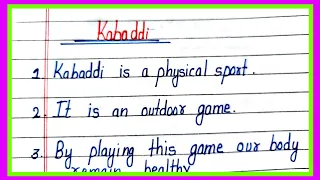 Kabaddi
1. Kabaddi is a physical sport.
2. It is an outdoor game.
3. By playing this game our body
remain healthy